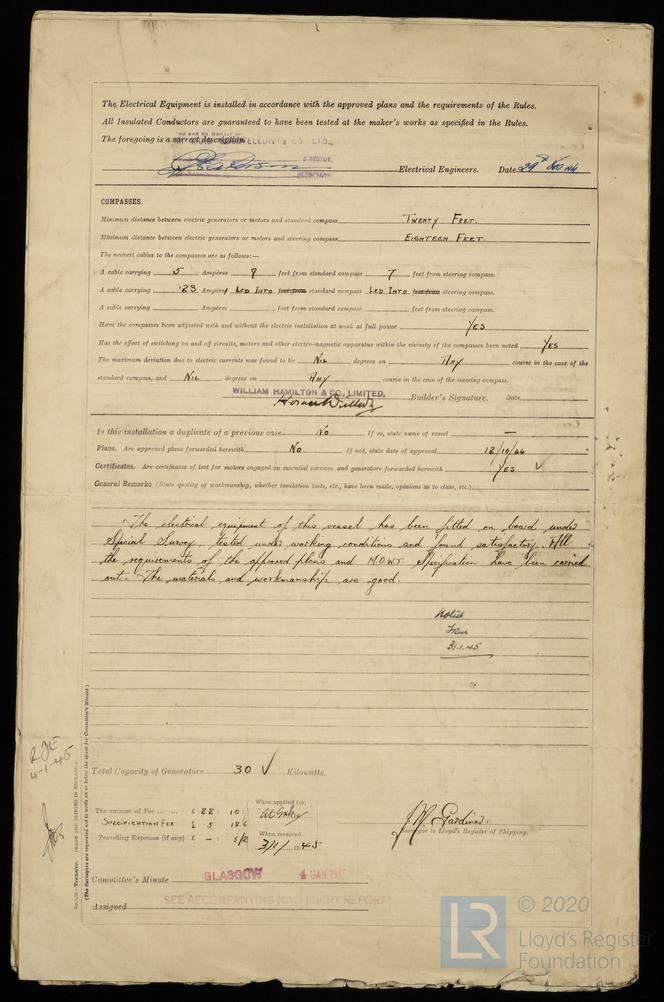 The Electrical Equipment is installed in accordance with the approved plans and the requirements of the Rules.
All Insulated Conductors are guaranteed to have been tested at the maker's works as specified in the Rules.
The foregoing is a correct description.
DIRECTOR
SECRETARY
Electrical Engineers. Date 29th Nov 44
COMPASSES.
Minimum distance between electric generators or motors and standard compass TWENTY FEET.
Minimum distance between electric generators or motors and steering compass EIGHTEEN FEET.
The nearest cables to the compasses are as follows:—
A cable carrying 5 Ampères 9 feet from standard compass 7 feet from steering compass.
A cable carrying .23 Ampères LED INTO feet from standard compass LED INTO feet from steering compass.
A cable carrying Ampères feet from standard compass feet from steering compass.
Have the compasses been adjusted with and without the electric installation at work at full power YES
Has the effect of switching on and off circuits, motors and other electro-magnetic apparatus within the vicinity of the compasses been noted YES
The maximum deviation due to electric currents was found to be NIL degrees on ANY course in the case of the
standard compass, and NIL degrees on ANY course in the case of the steering compass.
WILLIAM HAMILTON & CO. LIMITED,
Builder's Signature. Date
Is this installation a duplicate of a previous case No If so, state name of vessel —
Plans. Are approved plans forwarded herewith No If not, state date of approval 12/10/44
Certificates. Are certificates of test for motors engaged on essential services and generators forwarded herewith YES ✓
General Remarks (State quality of workmanship, whether insulation tests, etc., have been made, opinions as to class, etc.)
The electrical equipment of this vessel has been fitted on board under
Special Survey, tested under working conditions and found satisfactory. All
the requirements of the approved plans and M.O.W.T. Specification have been carried
out. The materials and workmanship are good.
Noted
31.1.45
Total Capacity of Generators 30 ✓ Kilowatts.
RJE
4-1-45
The amount of Fee ... ... £ 22 : 10 :
When applied for,
SPECIFICATION FEE £ 5 : 12/6
Travelling Expenses (if any) £ — : 5/2
When received,
3/1/1945
J. M. Gardiner.
Surveyor to Lloyd's Register of Shipping.
Committee's Minute GLASGOW 4 JAN 1945
SEE ACCOMPANYING MACHINERY REPORT
Assigned
(The Surveyors are requested not to write on or below the space for Committee's Minute.)
Transfer. (MADE AND PRINTED IN ENGLAND.)
LR
© 2020
Lloyd's Register
Foundation